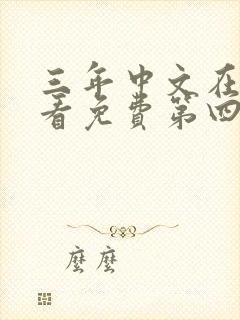 三年中文在
看免费第四
麼麼